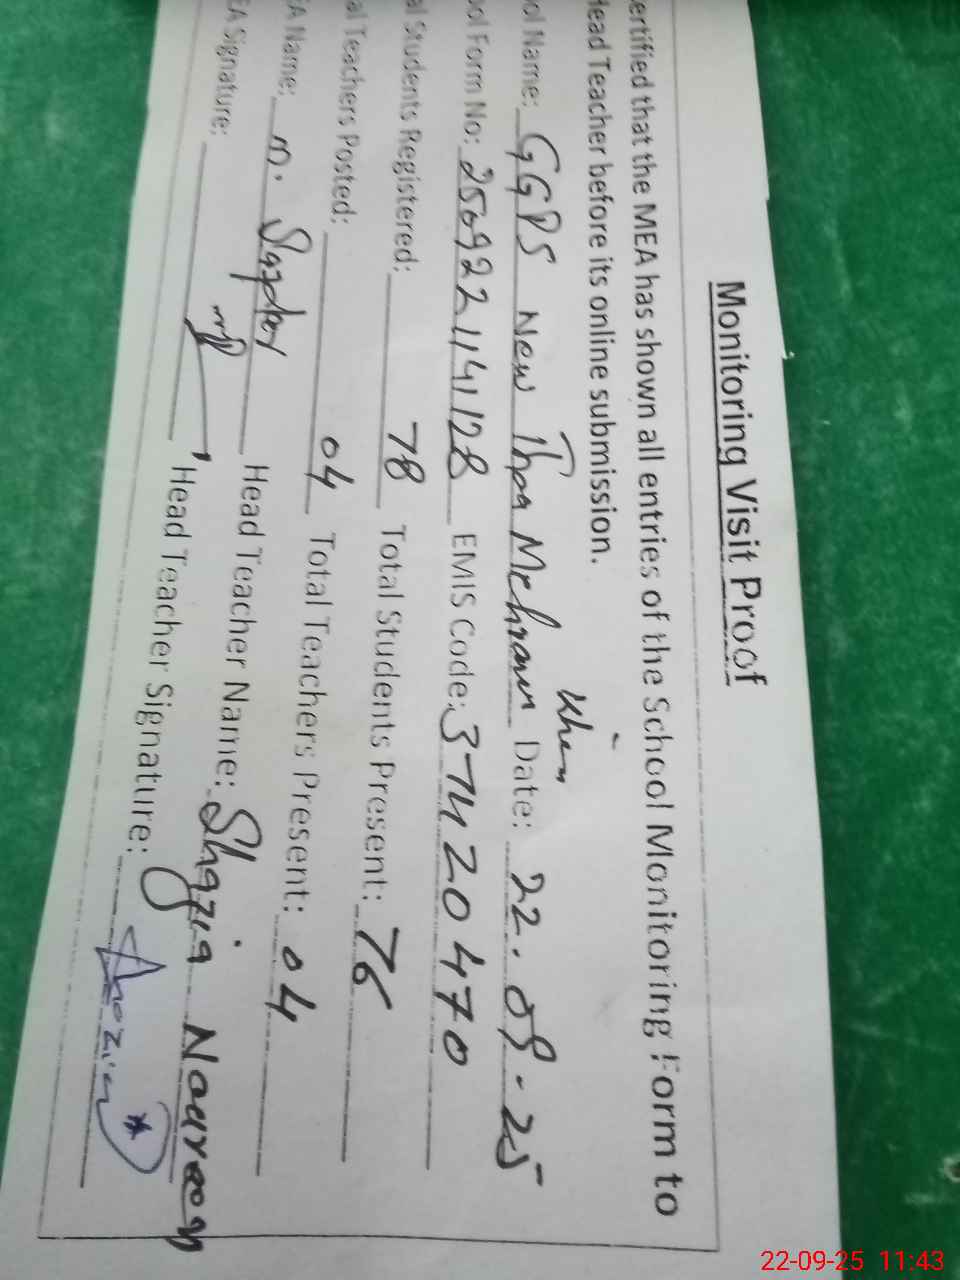 Monitoring Visit Proof
ertified that the MEA has shown all entries of the School Monitoring Form to
Head Teacher before its online submission.
ool Name: GGPS New Thaa Mehram Date: 22.09-25
ool Form No: 2509221141128 EMIS Code: 37420470
al Students Registered: 78 Total Students Present: 76
al Teachers Posted: 04 Total Teachers Present: 04
EA Name: M. Head Teacher Name: Shazia Noureen
EA Signature: Head Teacher Signature:
22-09-25 11:43